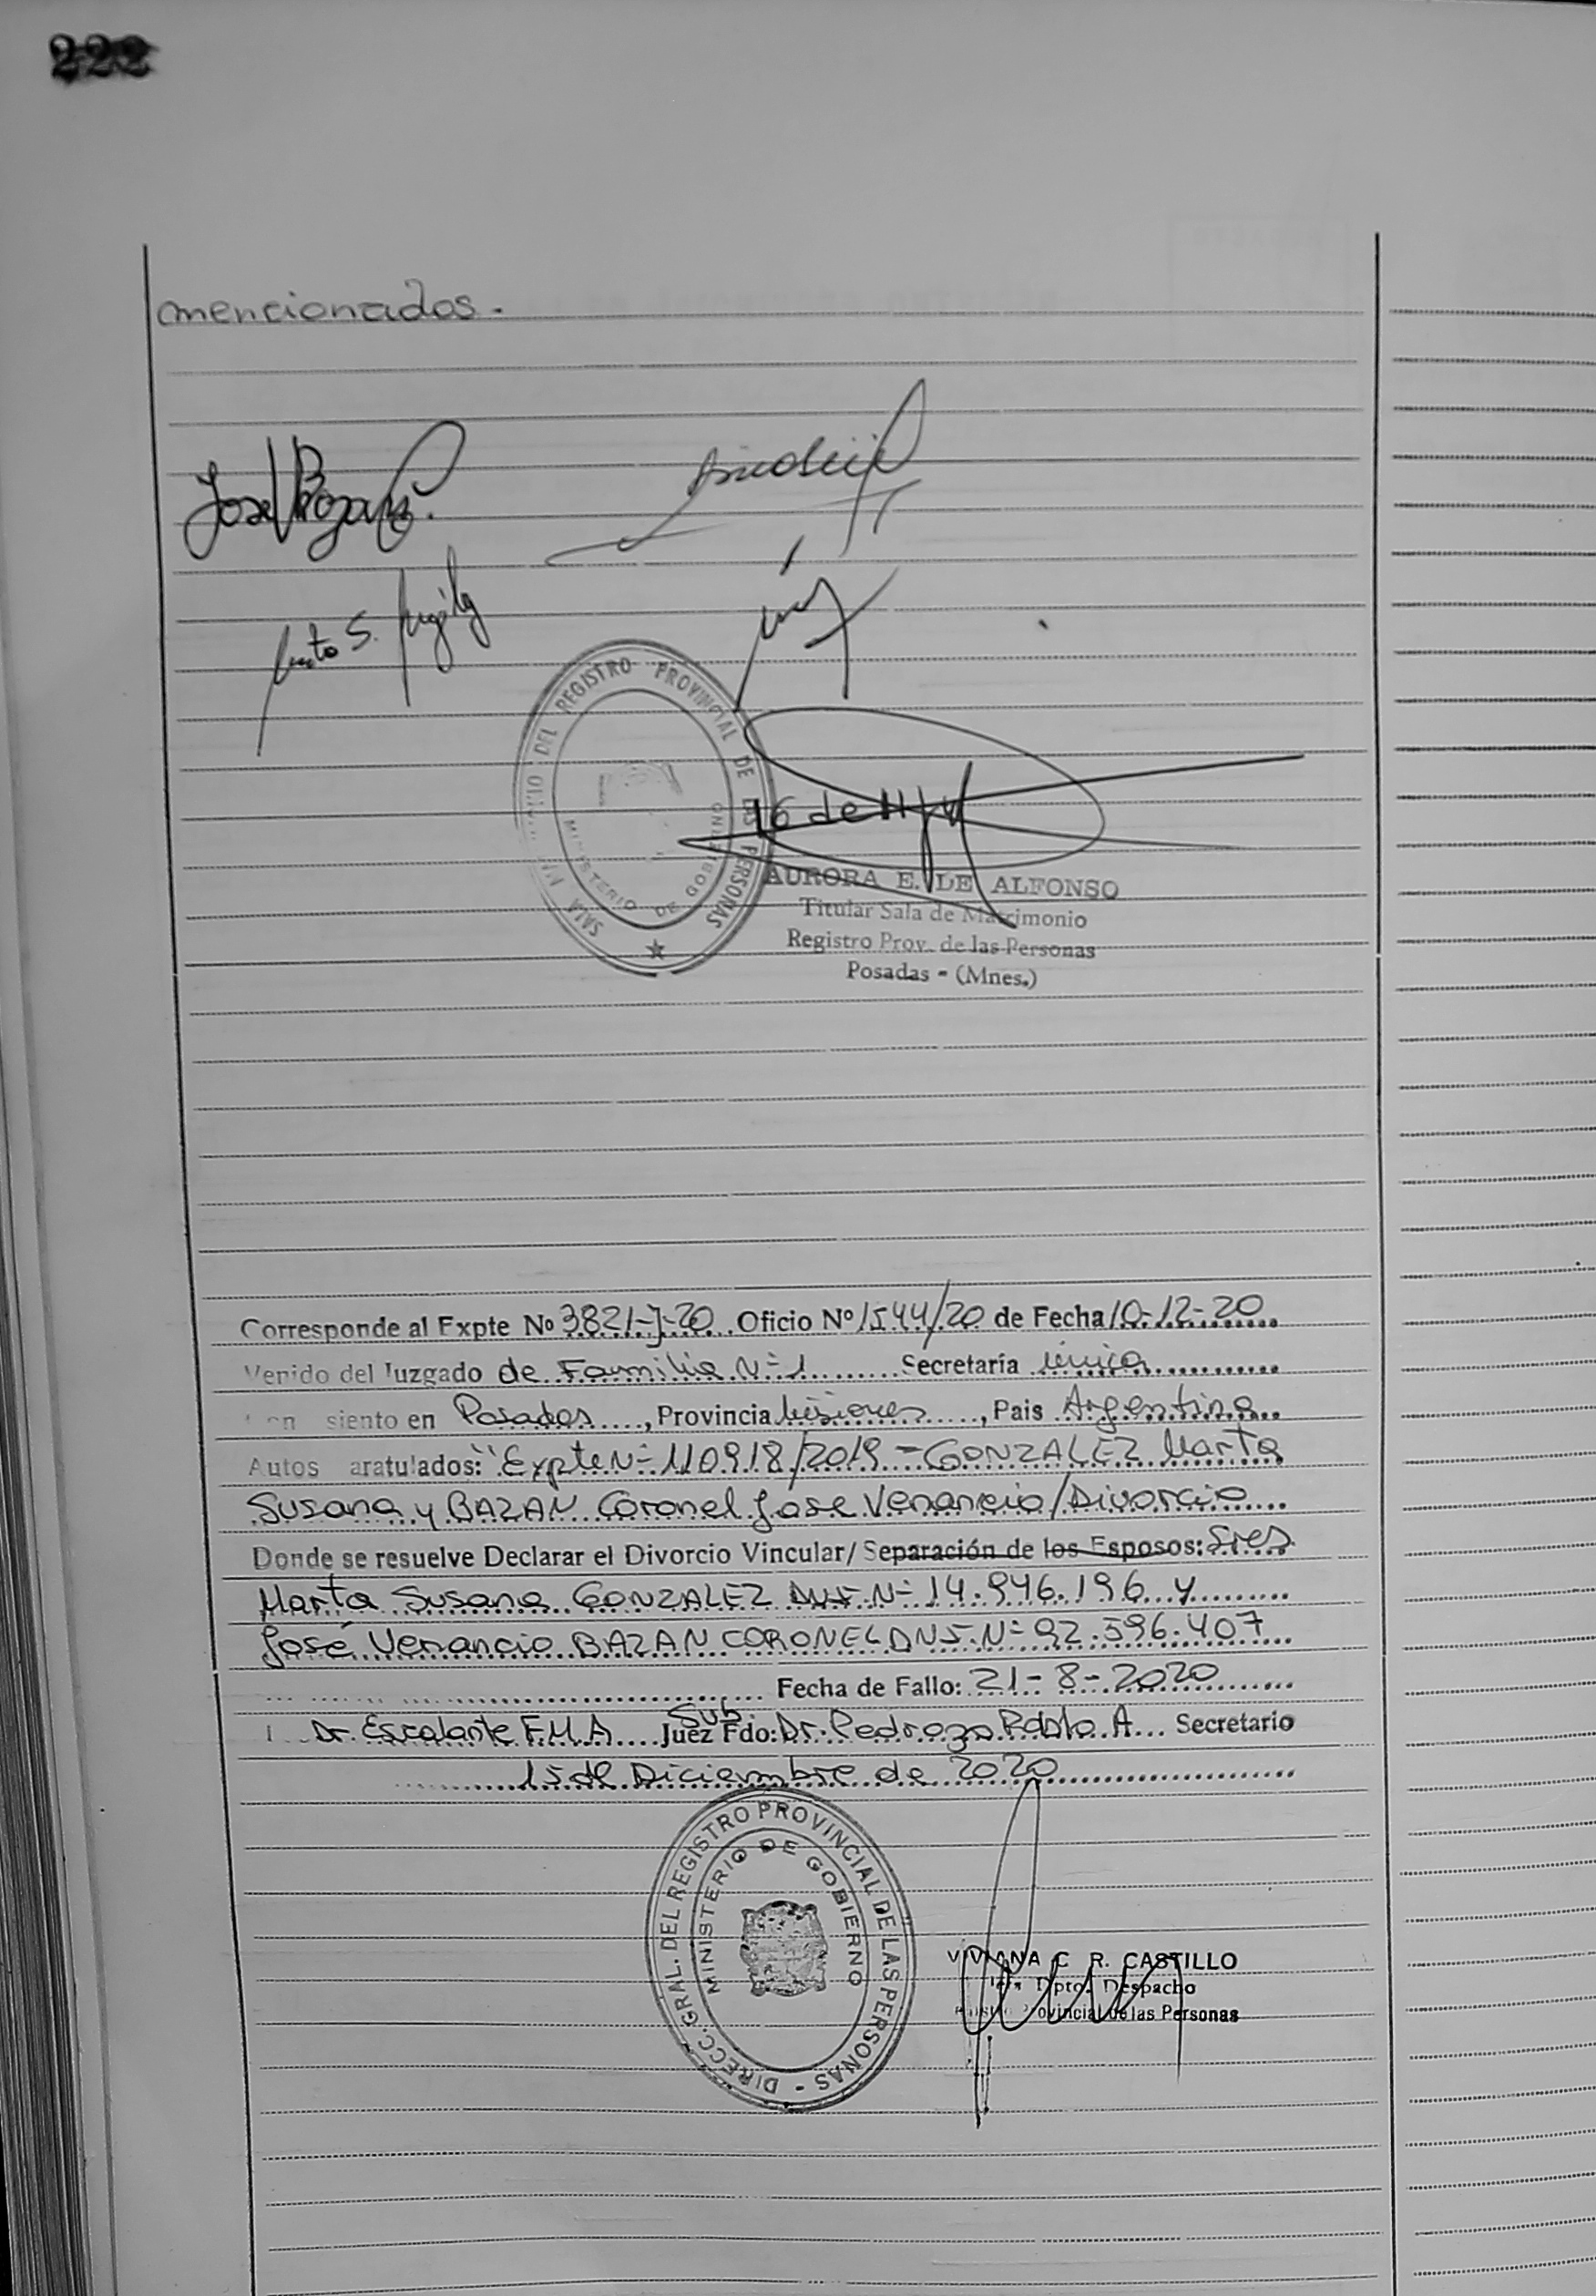 222
mencionados.
SALA MATRIMONIO DEL REGISTRO PROVINCIAL DE LAS PERSONAS
MINISTERIO DE GOBIERNO
AURORA E. DE ALFONSO
Titular Sala de Matrimonio
Registro Prov. de las Personas
Posadas - (Mnes.)
Corresponde al Expte Nº 3821-J-20 Oficio Nº 1544/20 de Fecha 10-12-20
Venido del Juzgado de Familia Nº 1 Secretaría única
siento en Posadas, Provincia Misiones, Pais Argentina
Autos aratulados: "Expte Nº 110918/2019 - GONZALEZ Marta
Susana y BAZAN Coronel Jose Venancio/Divorcio
Donde se resuelve Declarar el Divorcio Vincular/ Separación de los Esposos: Sres
Marta Susana GONZALEZ DNI Nº 14.946.196 y
José Venancio BAZAN CORONEL DNI Nº 92.596.407
Fecha de Fallo: 21-8-2020
Dr. Escalante F.M.A Juez Sub. Fdo: Dr. Pedrozo Pablo A. Secretario
15 de Diciembre de 2020
DIRECC. GRAL. DEL REGISTRO PROVINCIAL DE LAS PERSONAS -
MINISTERIO DE GOBIERNO
VIVIANA C R. CASTILLO
Dpto. Despacho
Provincial de las Personas